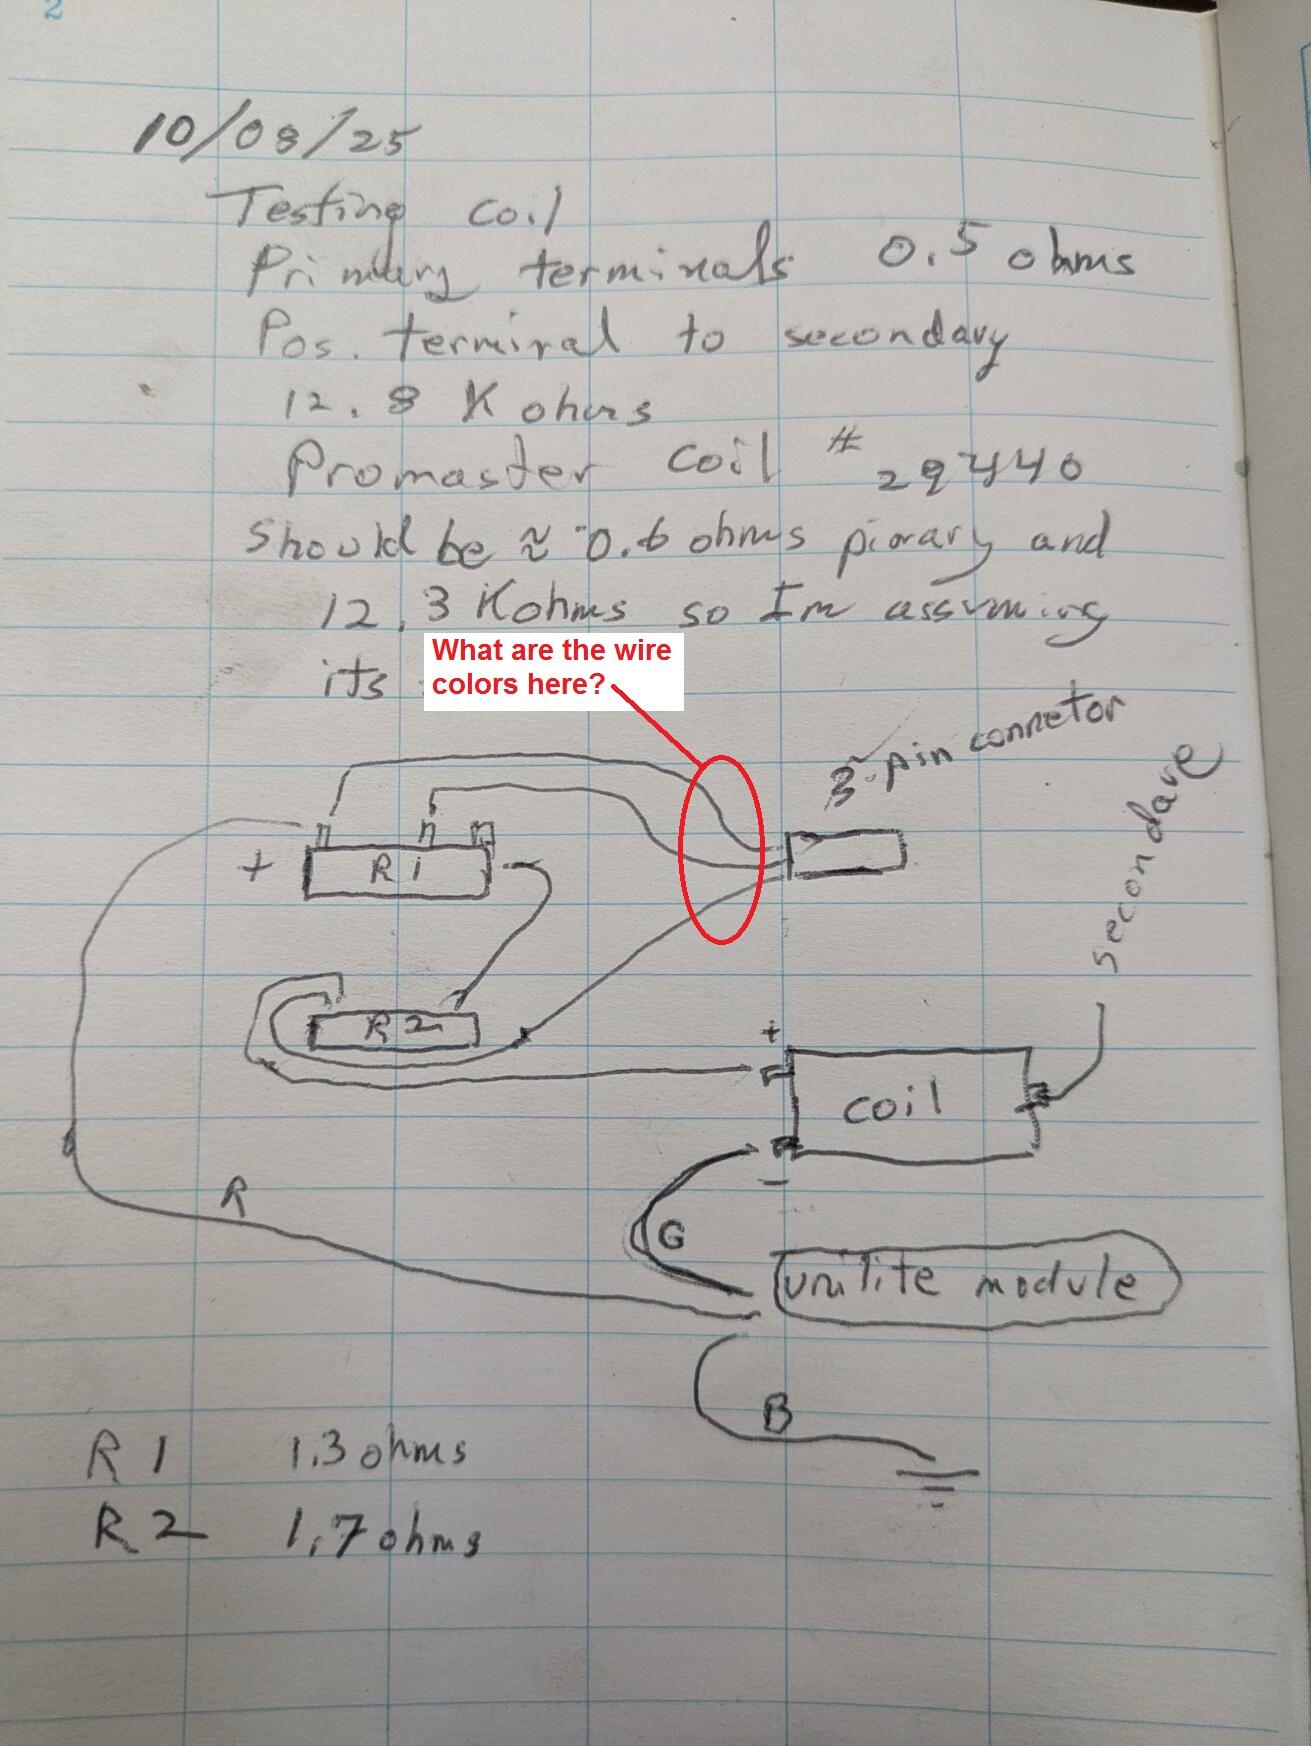 2
10/08/25
Testing coil
Primary terminals 0.5 ohms
Pos. terminal to secondary
12.8 K ohms
Promaster coil # 29440
should be ≈ 0.6 ohms pirary and
12.3 Kohms so Im assuming
its
What are the wire
colors here?
3-pin connetor
secondare
+ R1
R2
+
coil
−
R
G
unilite module
B
R1 1.3 ohms
R2 1.7 ohms